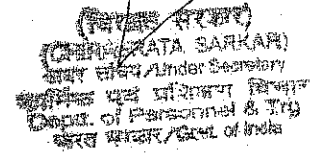 (चिरब्रत सरकार)
(CHIRABRATA SARKAR)
अवर सचिव/Under Secretary
कार्मिक एवं प्रशिक्षण विभाग
Deptt. of Personnel & Trg
भारत सरकार/Govt. of India